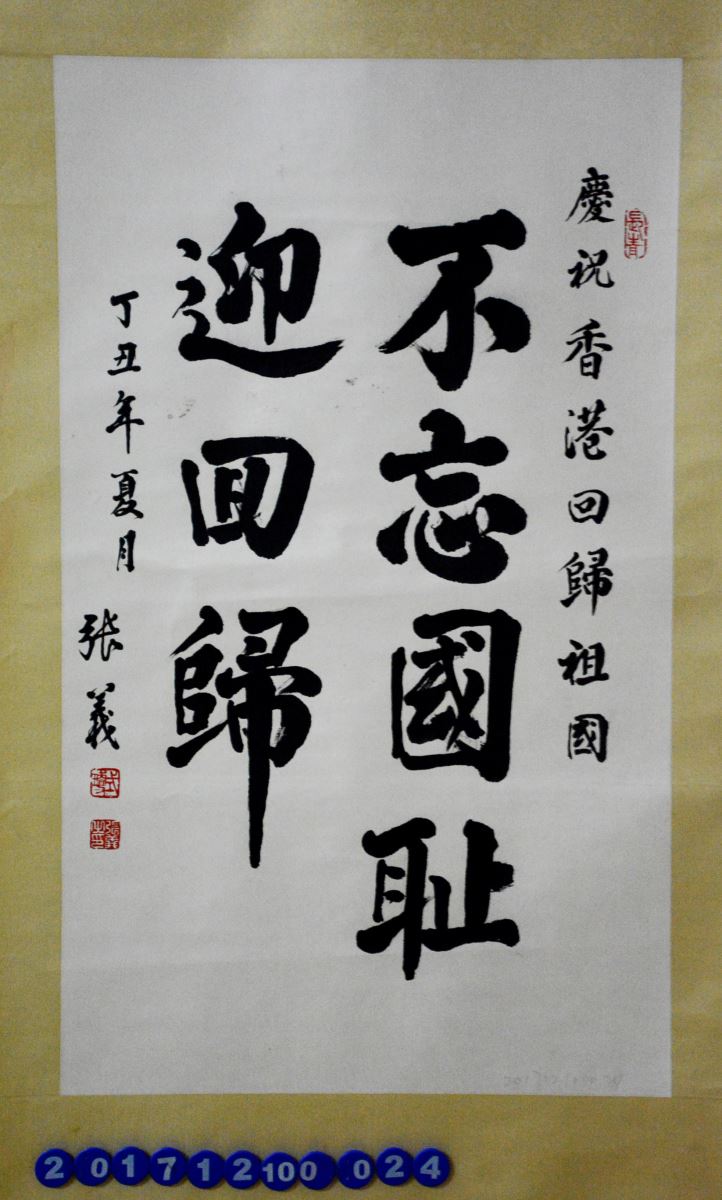 慶祝香港回歸祖國
不忘國耻
迎回歸
丁丑年夏月
張義
201712100024